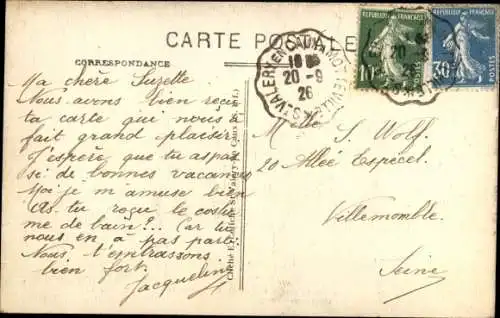 CARTE POSTALE
CORRESPONDANCE
Ma chère Suzette
Nous avons bien reçu
ta carte qui nous a
fait grand plaisir
J'espère que tu as pas
sé de bonnes vacances
Moi je m'amuse bien
As tu reçu le costu
me de bain?... Car tu
nous en a pas parlé
Nous t'embrassons
bien fort.
Jacqueline
St VALERY EN CAUX
20-9
26
REPUBLIQUE FRANÇAISE
10
POSTES
REPUBLIQUE FRANÇAISE
30
POSTES
Melle S. Wolf.
20 Allée Especel.
Villemomble.
Seine